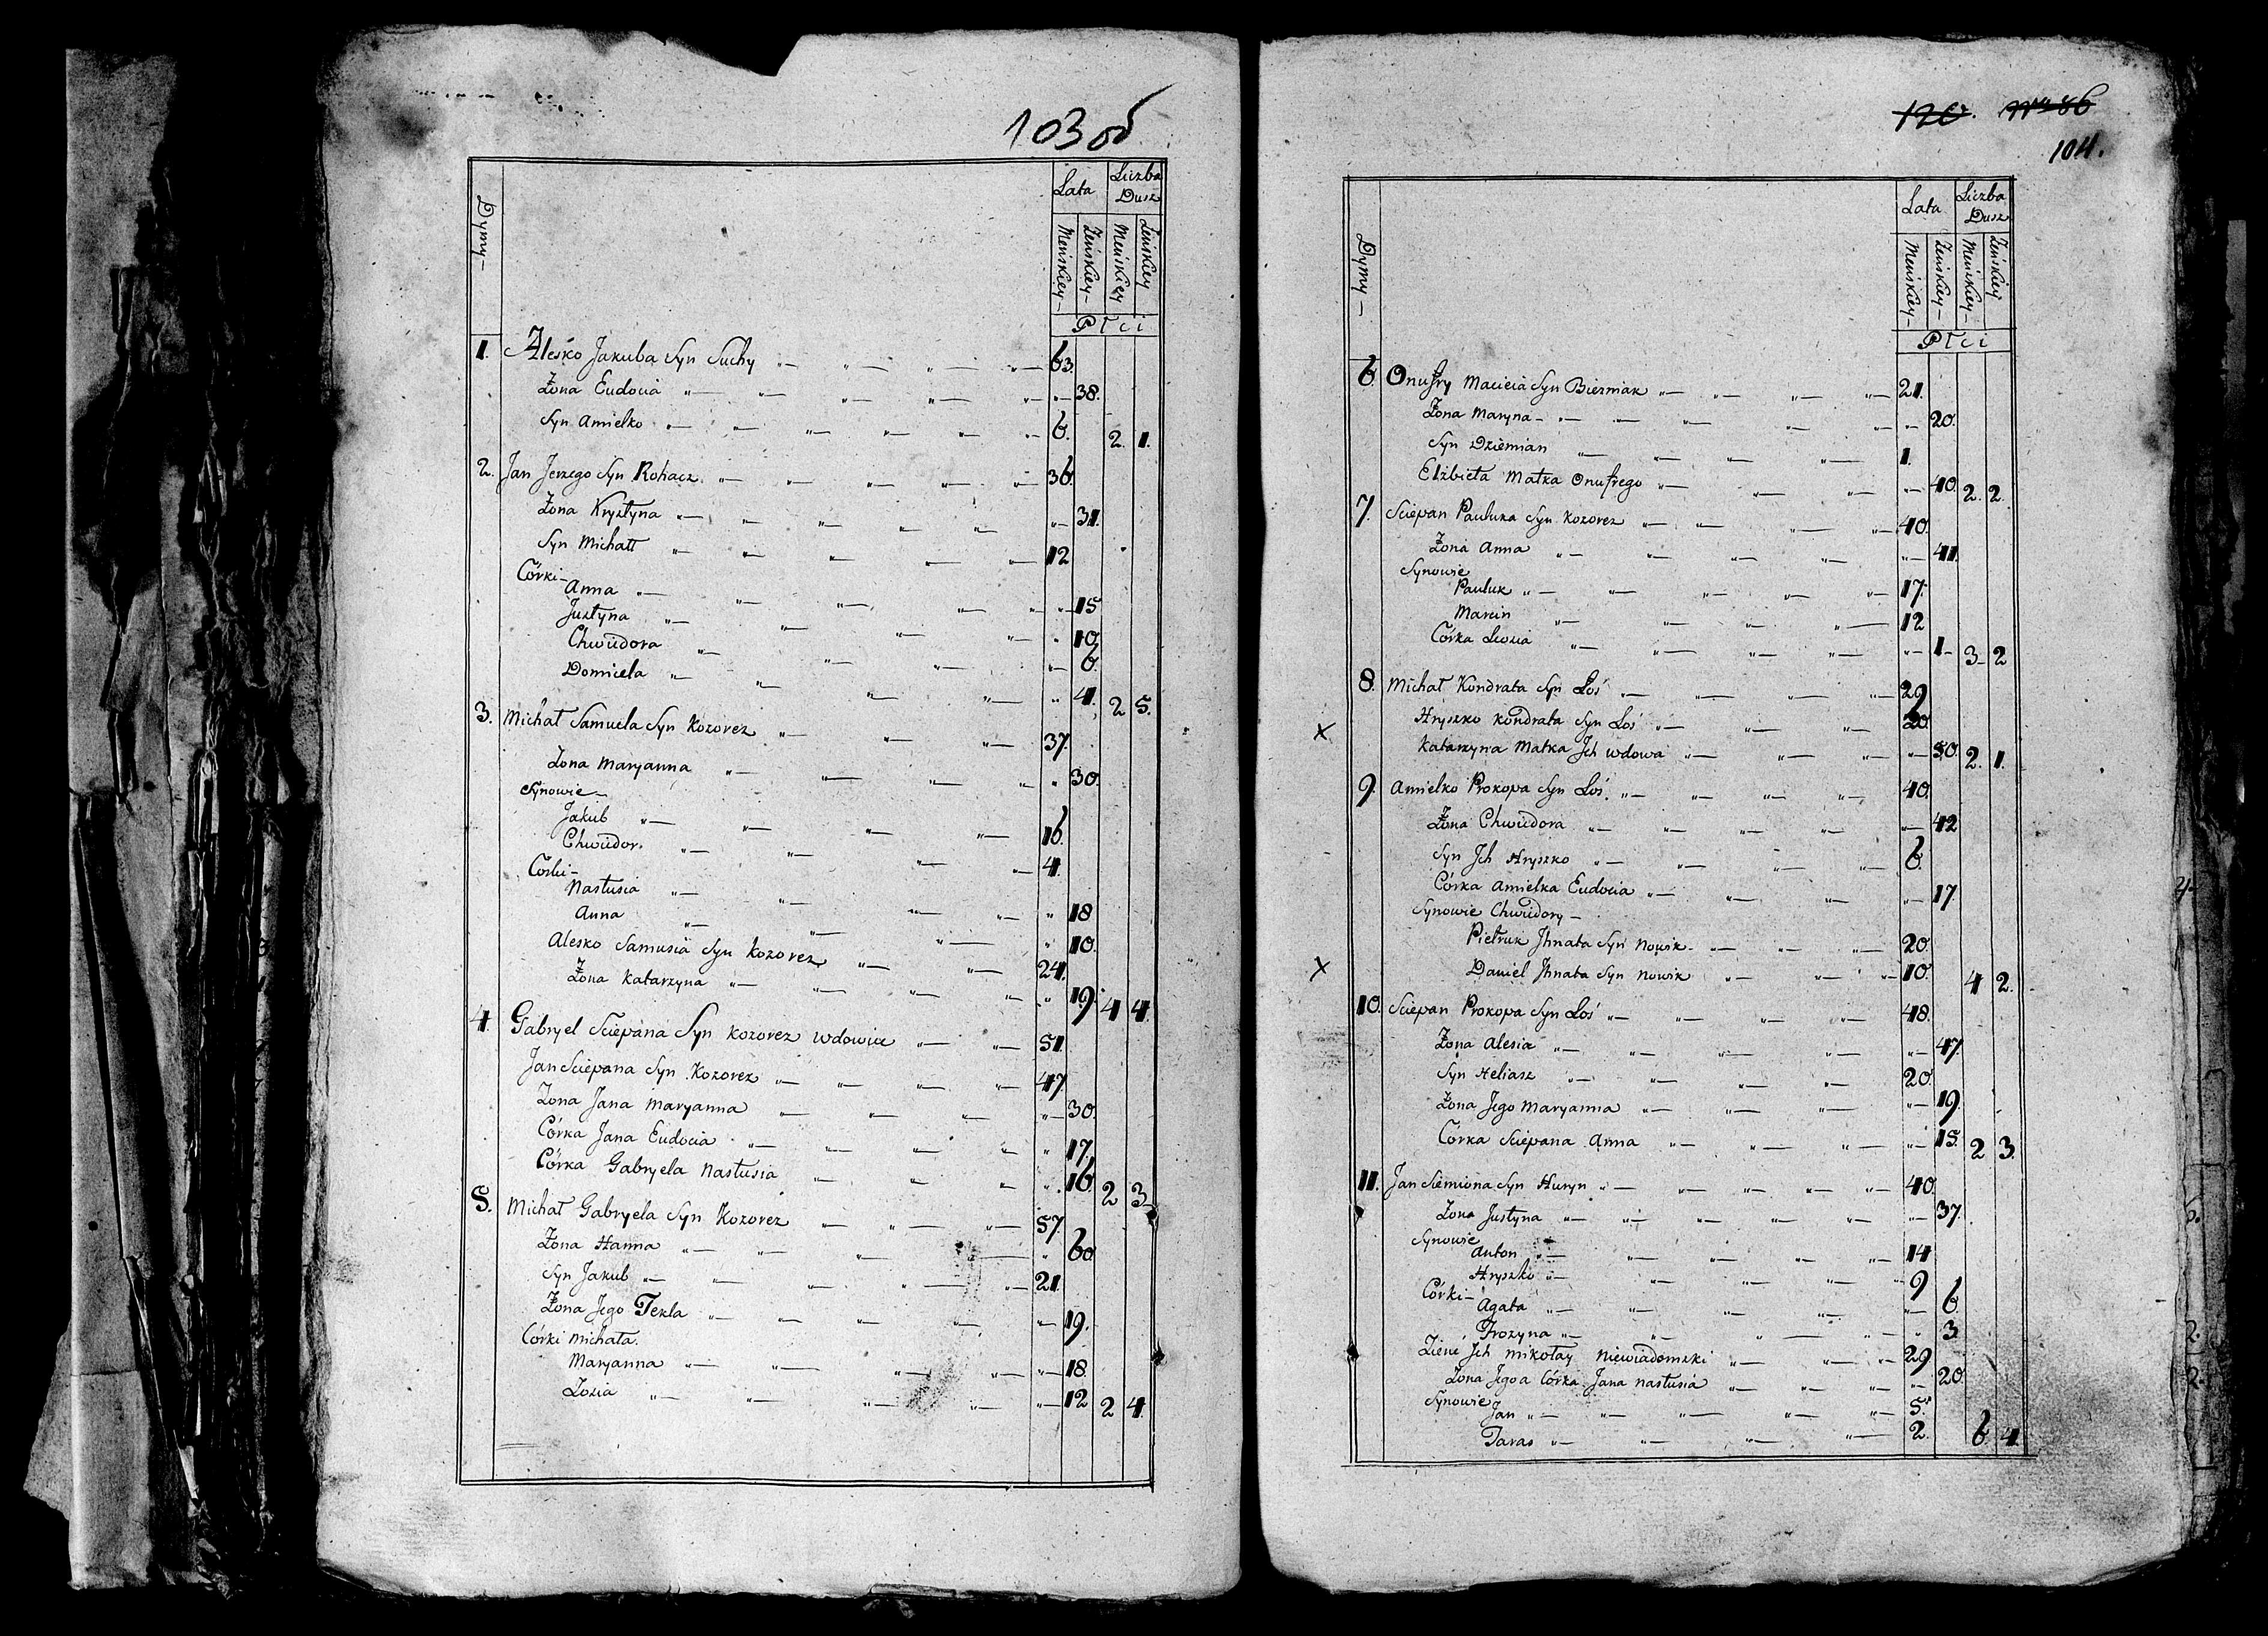 103 об
Dymy
Lata
Liczba Dusz
Męnskiey
Żenskiey
Męnskiey
Żenskiey
Płci
1. Alesko Jakuba Syn Suchy 63.
Żona Eudocia 38.
Syn Amielko 6. 2. 1.
2. Jan Jerzego Syn Rohacz 36.
Żona Krystyna 31.
Syn Michałł 12
Córki
Anna 15
Justyna 10
Chwiedora 6.
Domicela 4. 2 5.
3. Michał Samuela Syn Kozorez 37.
Żona Maryanna 30.
Synowie
Jakub 16.
Chwiedor 4.
Córki
Nastusia 18
Anna 10.
Alesko Samusia Syn Kozorez 24.
Żona Katarzyna 19. 4 4.
4. Gabryel Sciepana Syn Kozorez wdowiec 51.
Jan Sciepana Syn Kozorez 47.
Żona Jana Maryanna 30.
Córka Jana Eudocia 17.
Córka Gabryela Nastusia 16. 2 3
5. Michał Gabryela Syn Kozorez 57.
Żona Hanna 60
Syn Jakub 21.
Żona Jego Tekla 19.
Córki Michała.
Maryanna 18.
Zosia 12 2 4.
120.
86
104.
Dymy
Lata
Liczba Dusz
Męnskiey
Żenskiey
Męnskiey
Żenskiey
Płci
6. Onufry Macieia Syn Bierniak 21.
Żona Maryna 20.
Syn Dziemian 1.
Elżbieta Matka Onufrego 40. 2. 2.
7. Sciepan Pauluka Syn Kozorez 40.
Żona Anna 41.
Synowie
Pauluk 17.
Marcin 12
Córka 1 3 2
8. Michał Kondrata Syn Łoś 29
x Hryszko Kondrata Syn Łoś 20
Katarzyna Matka Jch wdowa 50. 2. 1.
9. Amielko Prokopa Syn Łoś 40.
Żona Chwiedora 42
Syn Jch Hryszko 6.
Córka Amielka Eudocia 17
Synowie Chwiedory
Pietruk Jhnata Syn Nowik 20.
x Daniel Jhnata Syn Nowik 10. 4 2.
10. Sciepan Prokopa Syn Łoś 48.
Żona Alesia 47.
Syn Heliasz 20.
Żona Jego Maryanna 19.
Córka Sciepana Anna 15. 2 3.
11. Jan Siemiona Syn Huryn 40.
Żona Justyna 37.
Synowie
Anton 14
Hryszko 9
Córki
Agata 6.
Frozyna 3
Zienć Jch Mikołay Niewiadomski 29
Żona Jego a Córka Jana Nastusia 20.
Synowie
Jan 5.
Taras 2. 6 4.